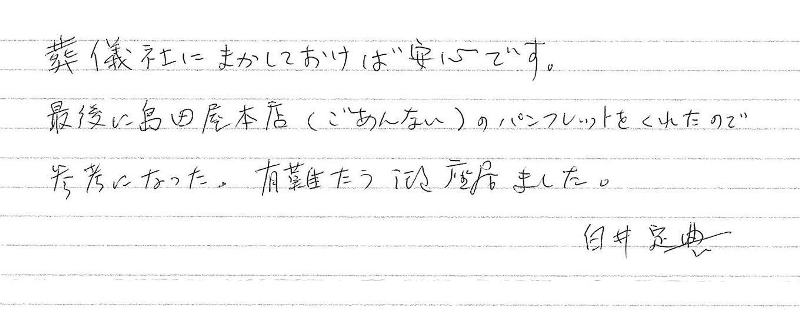 葬儀社にまかしておけば安心です。
最後に島田屋本店(ごあんない)のパンフレットをくれたので
参考になった。有難たう御座居ました。
白井定典